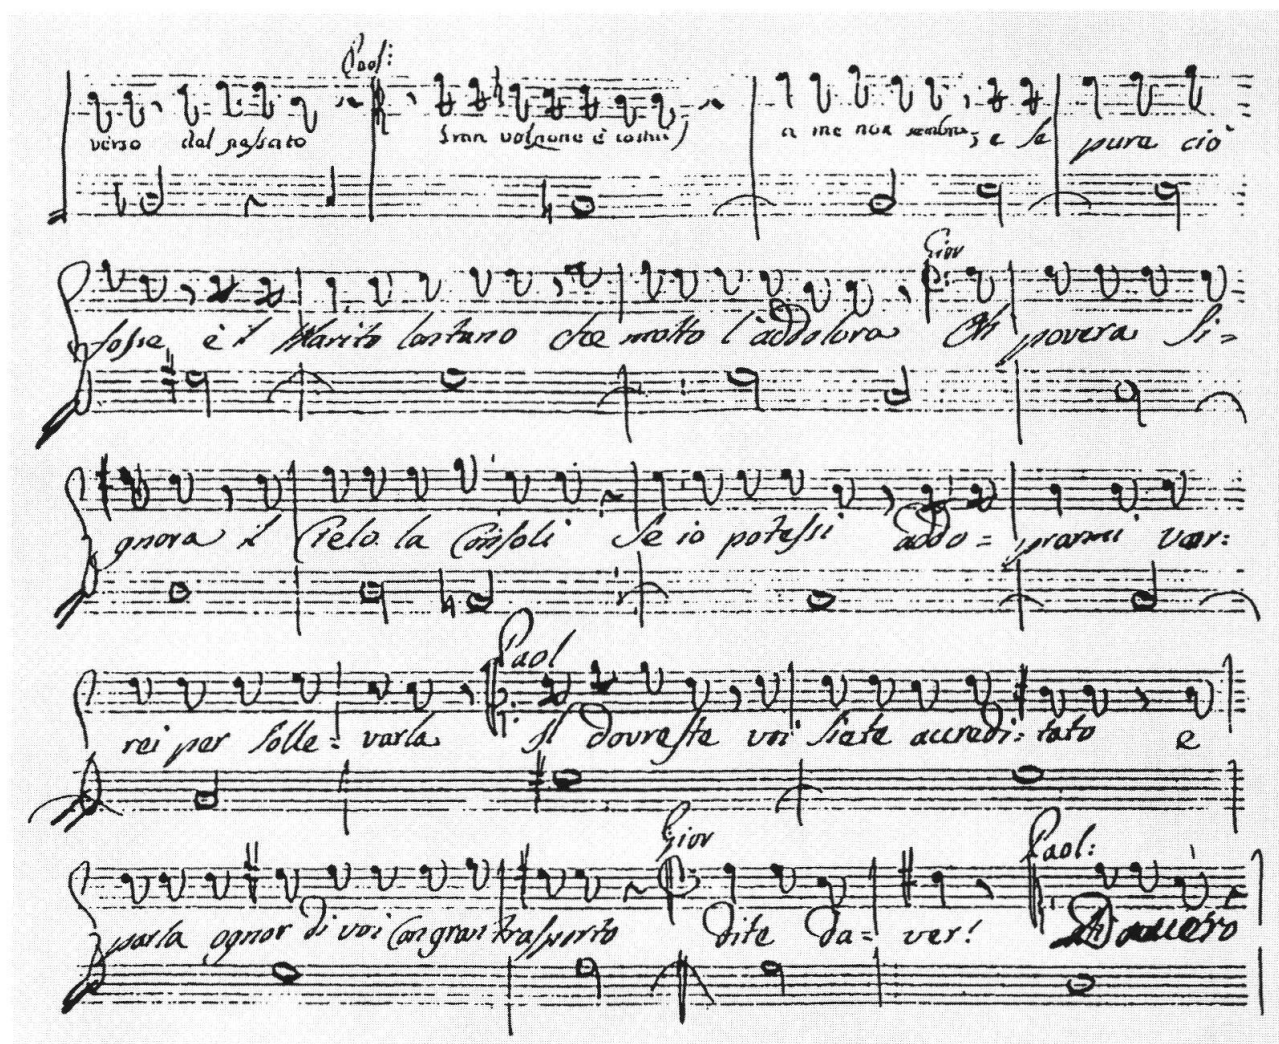 Paol:
verso dal passato Gran volpone è costui) a me non sembra; e se pure ciò
Giov
fosse è il Marito lontano che molto l'addolora Oh povera Si=
gnora il Cielo la Consoli Se io potessi addo= prarmi vor:
Paol
rei per solle= varla Si dovreste voi siete accredi: tato e
Giov Paol:
parla ognor di voi Con gran trasporto dite da= ver! Davvero